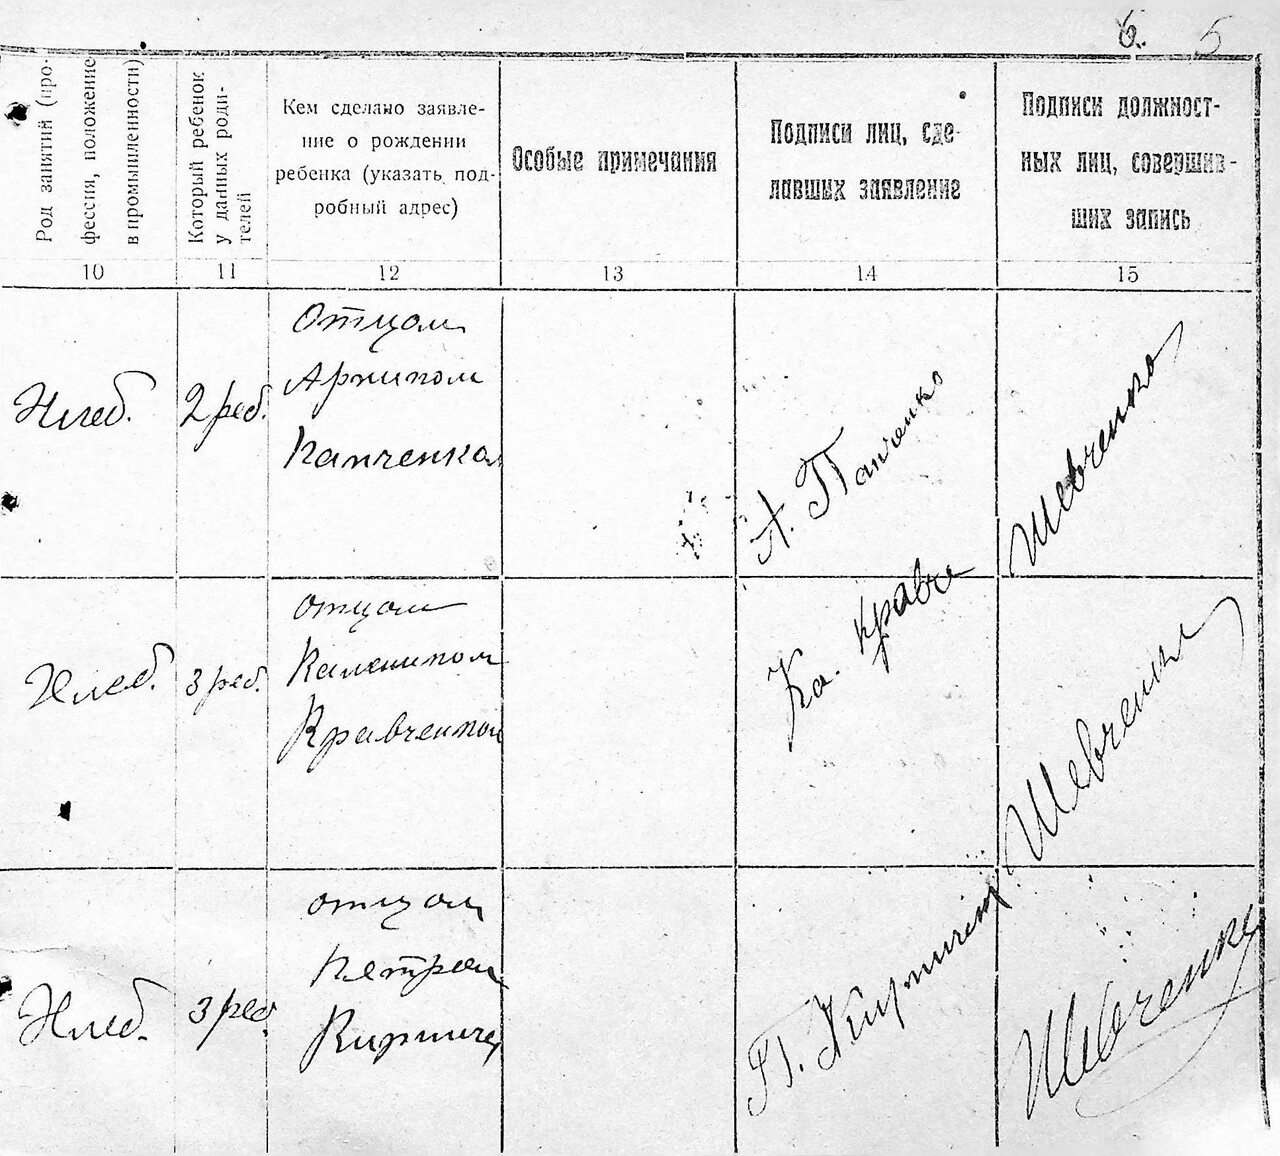 6. 5
Род занятий (про-
фессия, положение
в промышленности)
Который ребенок
у данных роди-
телей
Кем сделано заявле-
ние о рождении
ребенка (указать под-
робный адрес)
Особые примечания
Подписи лиц, сде-
лавших заявление
Подписи должност-
ных лиц, совершив-
ших запись
10 11 12 13 14 15
Хлеб.
2 реб.
Отцом
Архипом
Панченком
А. Панченко
Шевченко
Хлеб.
3 реб.
отцом
Калеником
Кравченком
Ка. Кравче
Шевченко
Хлеб.
3 реб.
отцом
Петром
П.
Шевченко